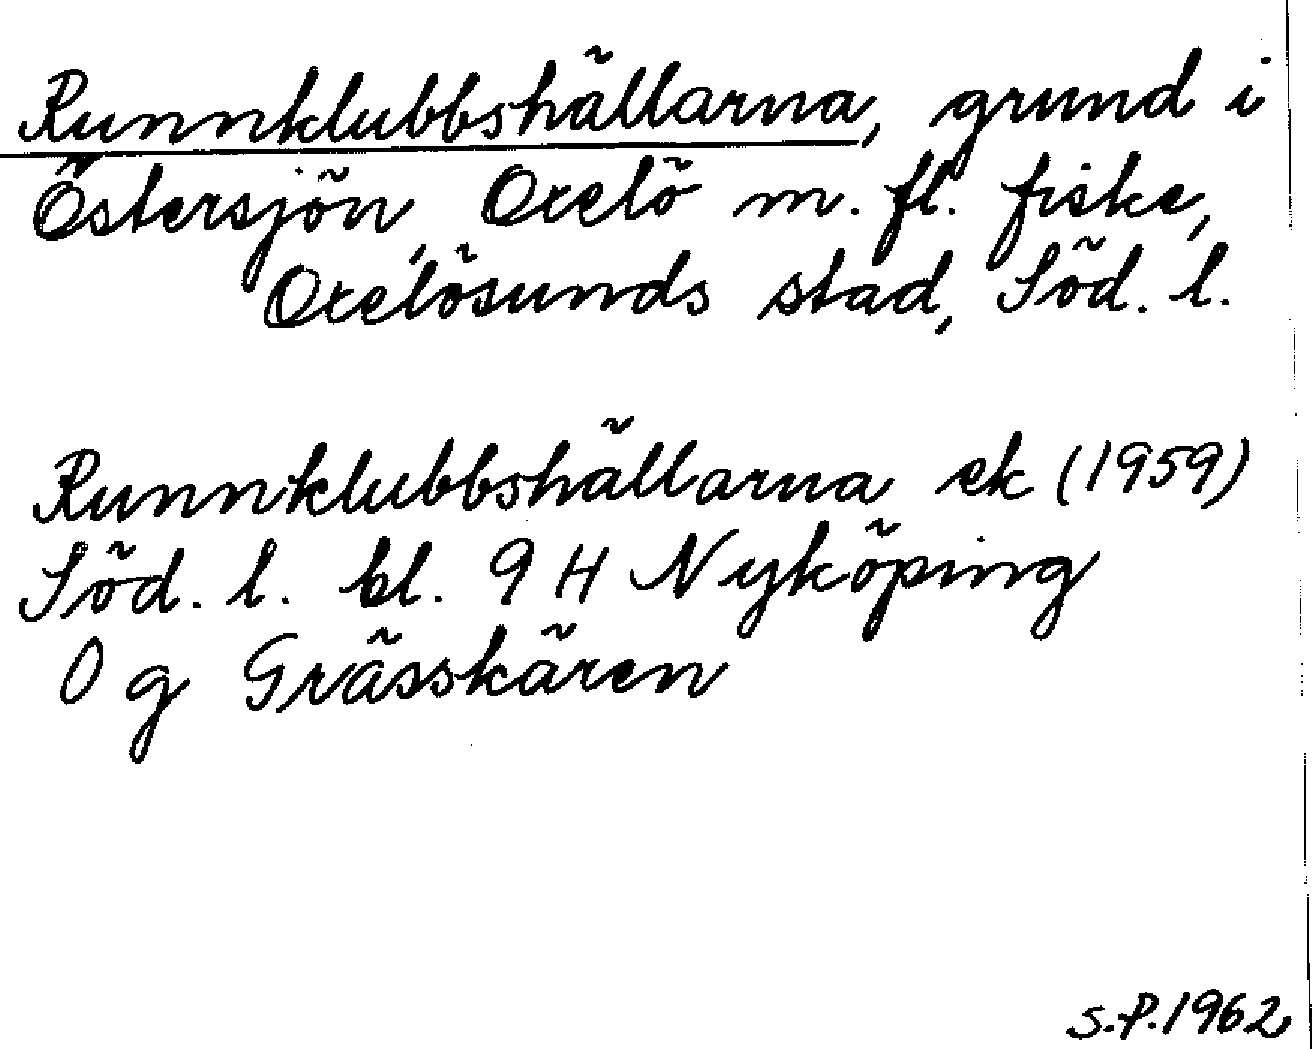 Runnklubbshällarna, grund i
Östersjön, Oxelö m. fl. fiske,
Oxelösunds stad, Söd. l.
Runnklubbshällarna ek (1959)
Söd. l. bl. 9 H Nyköping
0 g Grässkären
S.P. 1962